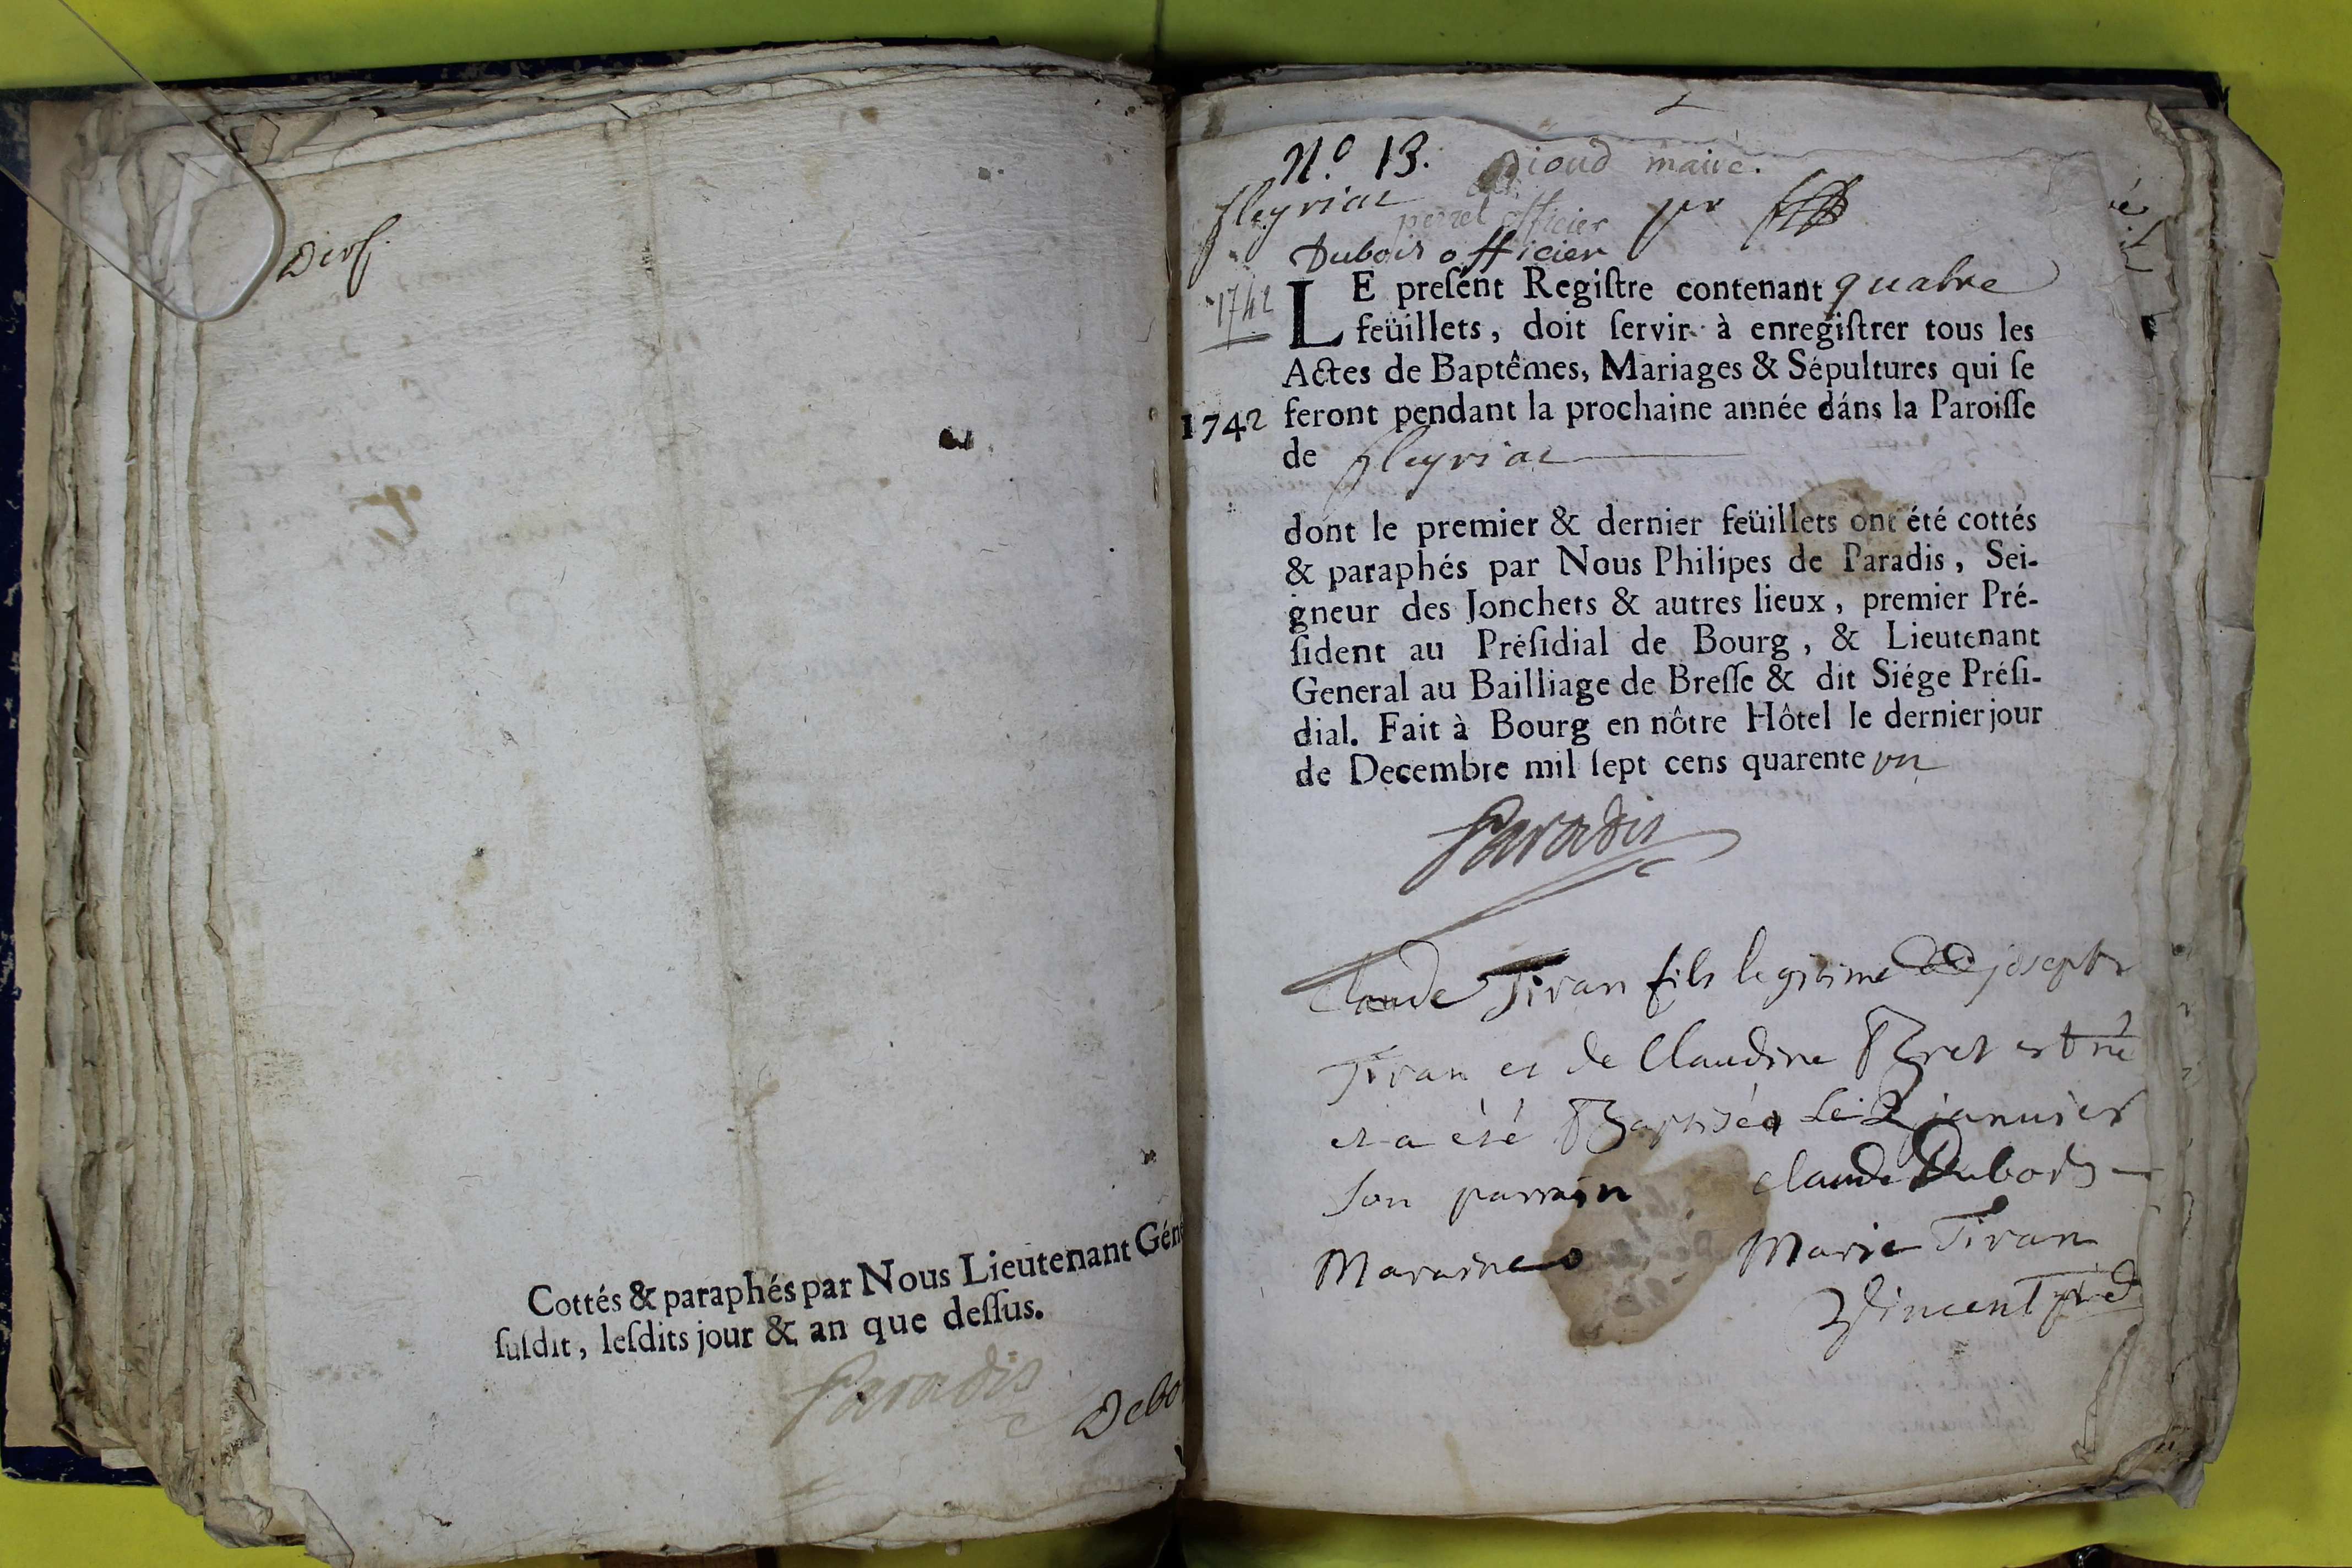 Cottés & paraphés par Nous Lieutenant Géné
ſuſdit, leſdits jour & an que deſſus.
Paradis
Debo
N.º 13. Dioud maire.
fleyriat
perret officier
Dubois officier
1742
LE preſent Regiſtre contenant quatre
feüillets, doit ſervir à enregiſtrer tous les
Actes de Baptêmes, Mariages & Sépultures qui ſe
1742 feront pendant la prochaine année dáns la Paroiſſe
de fleyriat
dont le premier & dernier feüillets ont été cottés
& paraphés par Nous Philipes de Paradis, Sei-
gneur des Jonchets & autres lieux, premier Pré-
ſident au Préſidial de Bourg, & Lieutenant
General au Bailliage de Breſſe & dit Siége Préſi-
dial. Fait à Bourg en nôtre Hôtel le dernier jour
de Decembre mil ſept cens quarente vn
Paradis
Claude Tiran fils legitime de joseph
Tiran et de Claudine Bret est né
et a été Baptisé le 2 janvier
son parrain Claude Dubois
Maraine Marie Tiran
Vincent